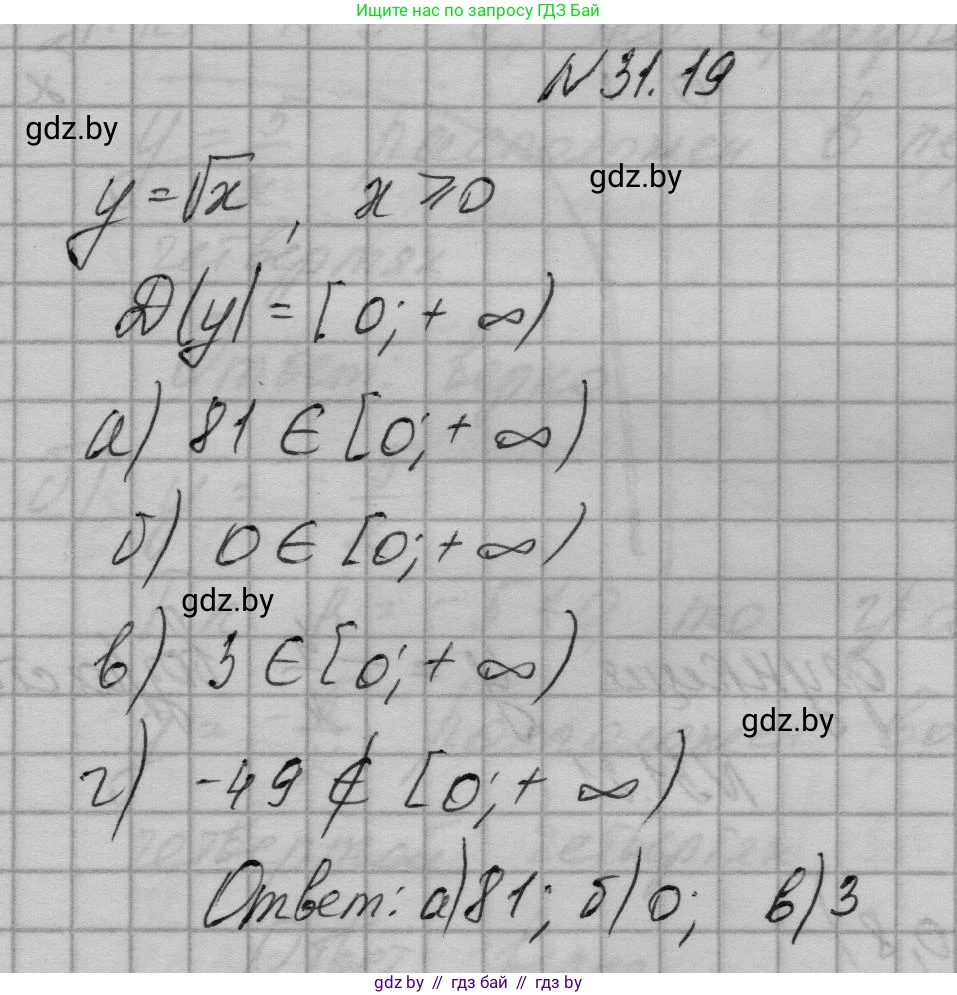 Ищите нас по запросу ГДЗ Бай
N 31.19
gdz.by
y = √x , x ⩾ 0
gdz.by
D(y) = [0; + ∞)
а) 81 ∈ [0; + ∞)
б) 0 ∈ [0; + ∞)
gdz.by
в) 3 ∈ [0; + ∞)
gdz.by
г) -49 ∉ [0; + ∞)
Ответ: а) 81; б) 0; в) 3
gdz.by // гдз бай // гдз by